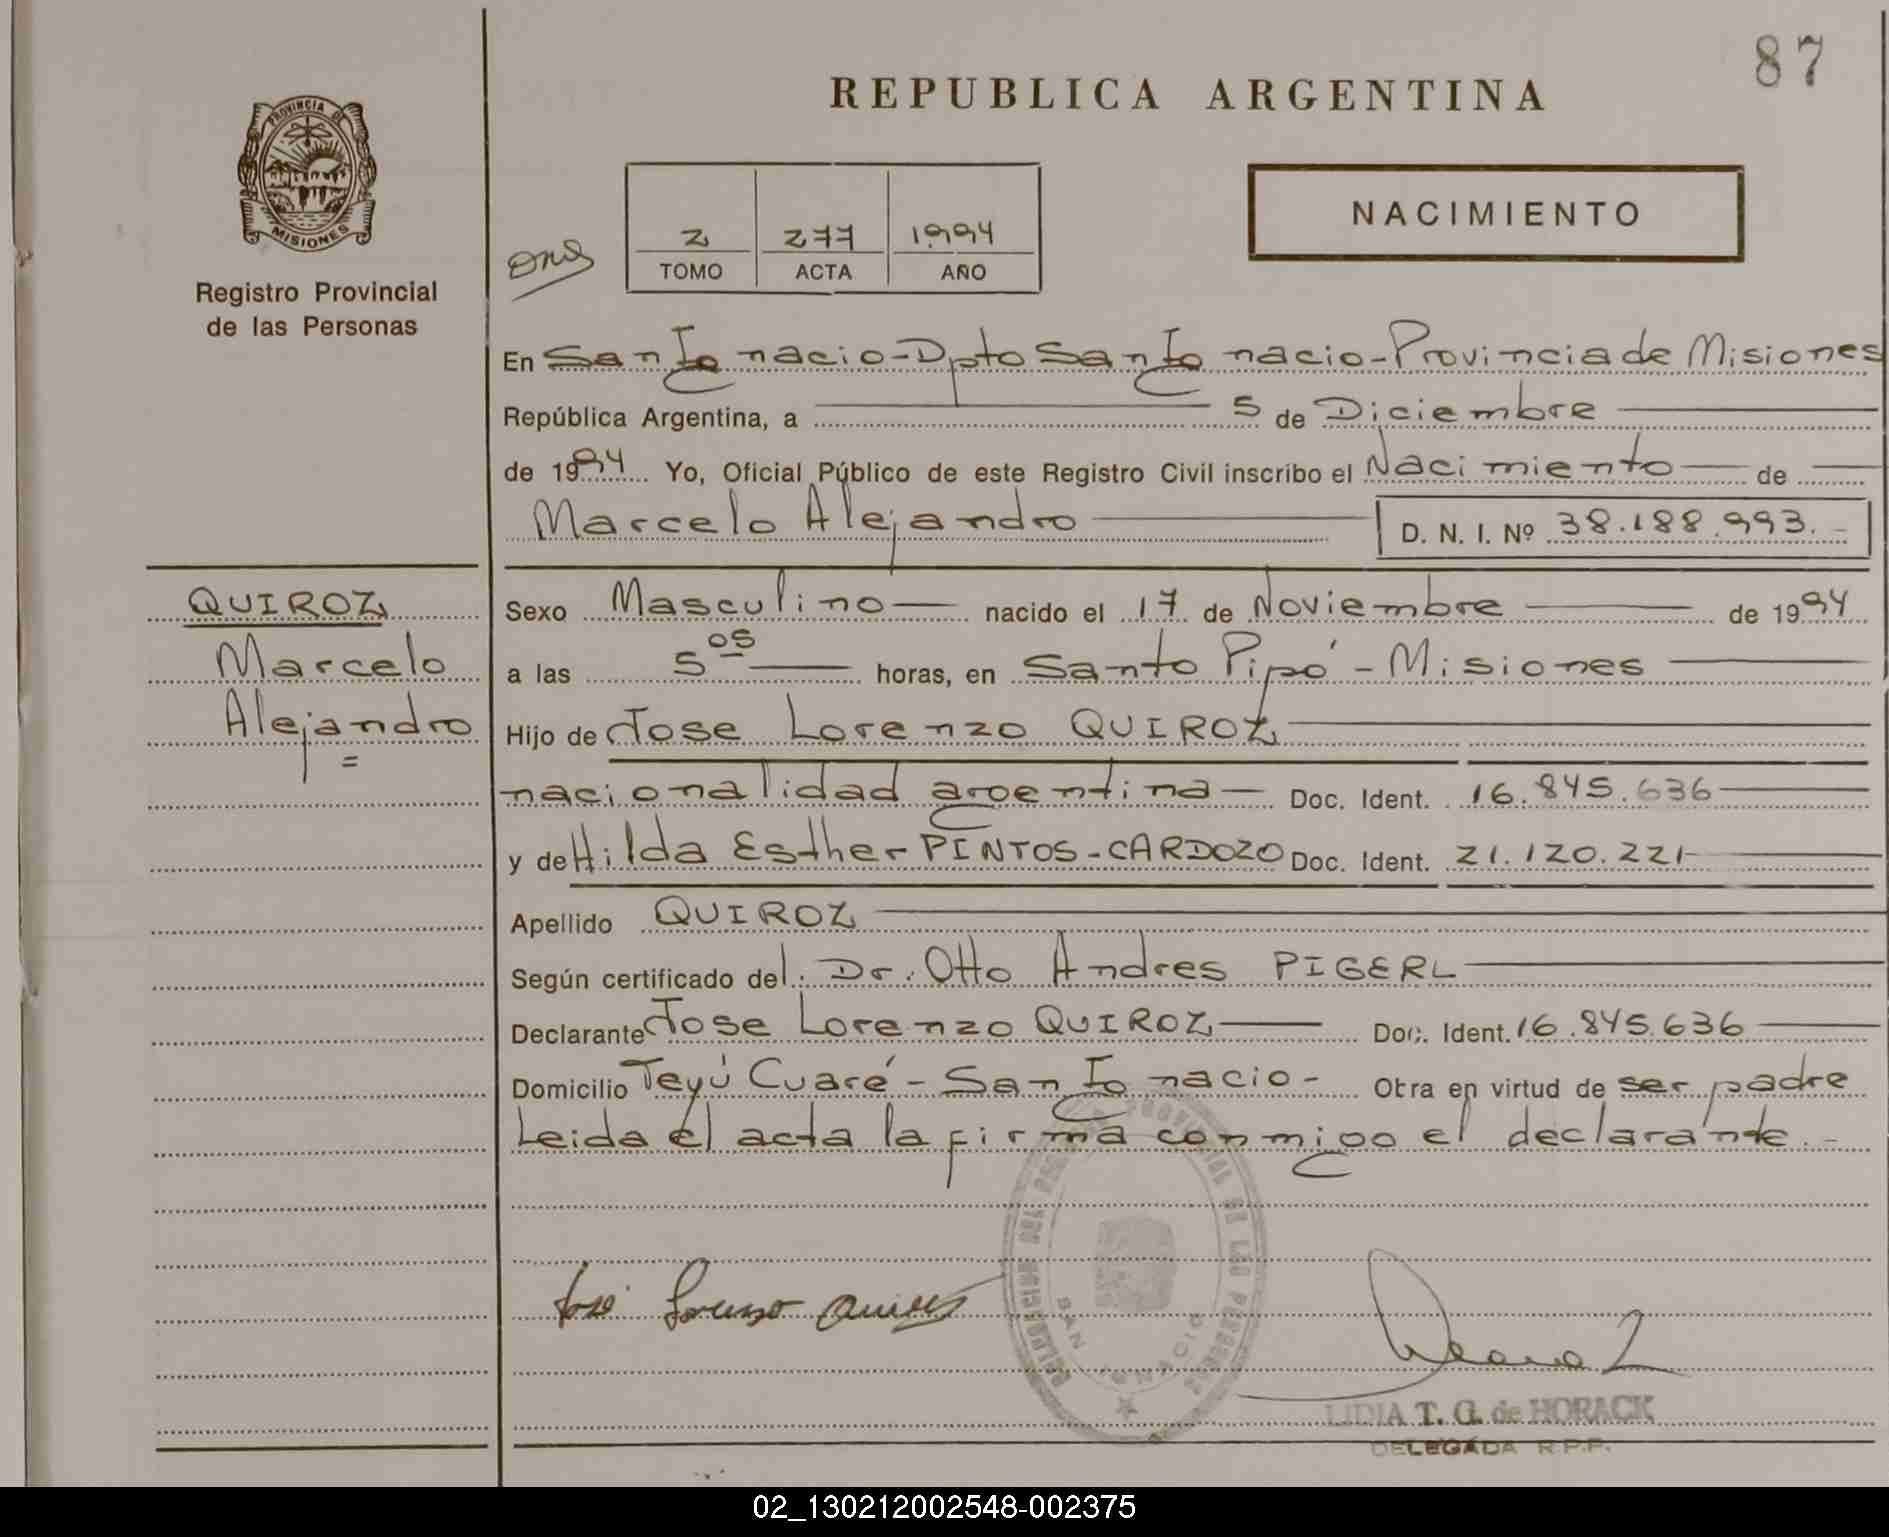 87
REPUBLICA ARGENTINA
PROVINCIA DE
MISIONES
NACIMIENTO
2 277 1994
TOMO ACTA AÑO
Registro Provincial
de las Personas
En San Ignacio - Dpto San Ignacio - Provincia de Misiones
República Argentina, a 5 de Diciembre
de 1994 Yo, Oficial Público de este Registro Civil inscribo el Nacimiento de
Marcelo Alejandro D. N. I. Nº 38.188.993.-
QUIROZ
Marcelo
Alejandro
=
Sexo Masculino nacido el 17 de Noviembre de 1994
a las 5 05 horas, en Santo Pipó - Misiones
Hijo de Jose Lorenzo QUIROZ
nacionalidad argentina - Doc. Ident. 16.845.636
y de Hilda Esther PINTOS-CARDOZO Doc. Ident. 21.120.221
Apellido QUIROZ
Según certificado del Dr. Otto Andres PIGERL
Declarante Jose Lorenzo QUIROZ Doc. Ident. 16.845.636
Domicilio Teyú Cuaré - San Ignacio - Obra en virtud de ser padre
Leida el acta la firma conmigo el declarante.-
José Lorenzo Quiroz
SAN IGNACIO
LIDIA T. G. de HORACK
DELEGADA R.P.P.
02_130212002548-002375